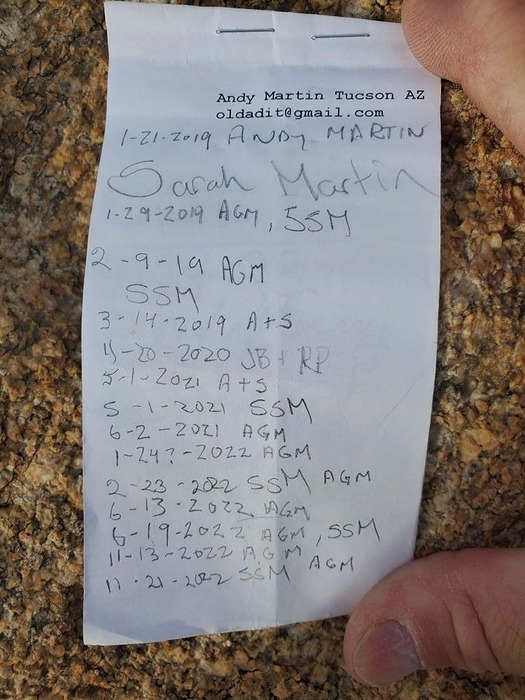 Andy Martin Tucson AZ
oldadit@gmail.com
1-21-2019 ANDY MARTIN
Sarah Martin
1-29-2019 AGM, SSM
2-9-19 AGM
SSM
3-14-2019 A+S
4-20-2020 JB + RP
5-1-2021 A+S
5-1-2021 SSM
6-2-2021 AGM
1-24?-2022 AGM
2-23-2022 SSM AGM
6-13-2022 AGM
6-19-2022 AGM, SSM
11-13-2022 AGM
11-21-2022 SSM AGM